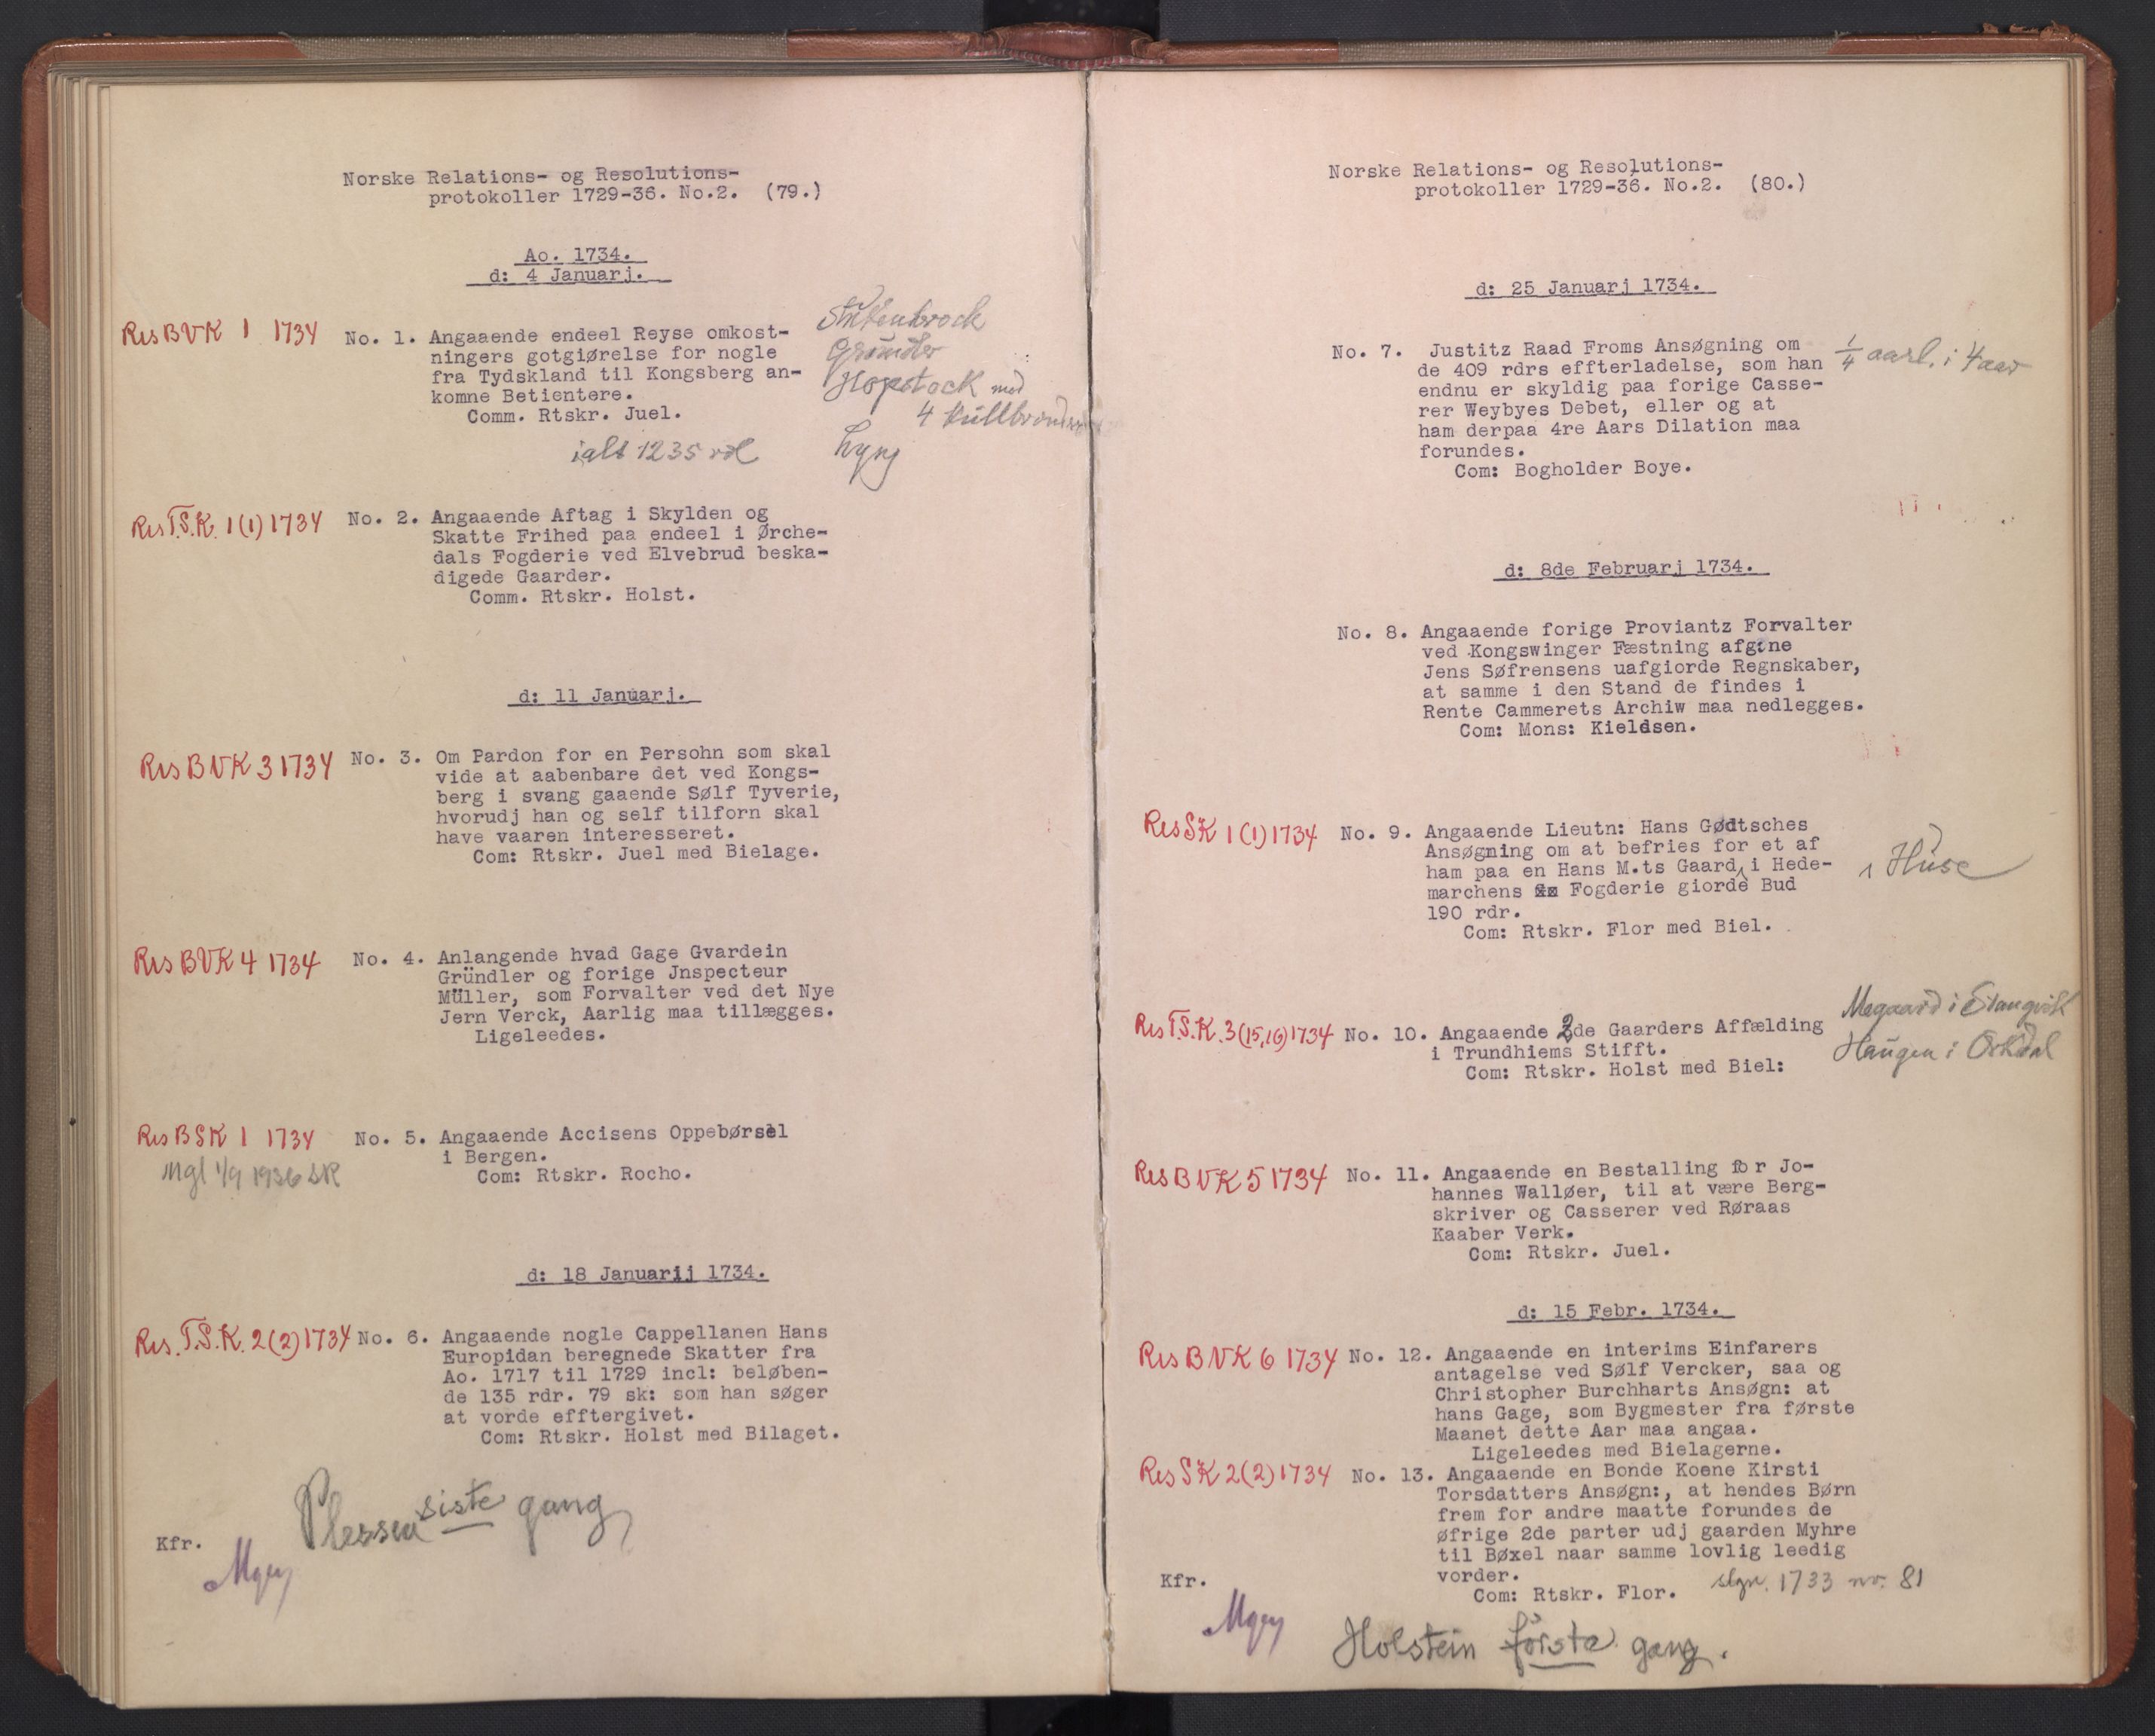 Norske Relations- og Resolutions-
protokoller 1729-36. No.2. (79.)
Ao. 1734.
d: 4 Januarj.
Res BVK 1 1734
No. 1. Angaaende endeel Reyse omkost-
ningers gotgiørelse for nogle
fra Tydskland til Kongsberg an-
komne Betientere.
Comm. Rtskr. Juel.
Stukenbrock
Gründler
Hopstock med
4
Lyng
ialt 1235 rdl
Res T.S.K. 1(1) 1734
No. 2. Angaaende Aftag i Skylden og
Skatte Frihed paa endeel i Ørche-
dals Fogderie ved Elvebrud beska-
digede Gaarder.
Comm. Rtskr. Holst.
d: 11 Januarj.
Res BVK 3 1734
No. 3. Om Pardon for en Persohn som skal
vide at aabenbare det ved Kongs-
berg i svang gaaende Sølf Tyverie,
hvorudj han og self tilforn skal
have vaaren interesseret.
Com: Rtskr. Juel med Bielage.
Res BVK 4 1734
No. 4. Anlangende hvad Gage Gvardein
Gründler og forige Jnspecteur
Müller, som Forvalter ved det Nye
Jern Verck, Aarlig maa tillægges.
Ligeleedes.
Res BSK 1 1734
Mgl 1/9 1936 SR
No. 5. Angaaende Accisens Oppebørsel
i Bergen.
Com: Rtskr. Rocho.
d: 18 Januarij 1734.
Res. T.S.K. 2(2) 1734
No. 6. Angaaende nogle Cappellanen Hans
Europidan beregnede Skatter fra
Ao. 1717 til 1729 incl: beløben-
de 135 rdr. 79 sk: som han søger
at vorde efftergivet.
Com: Rtskr. Holst med Bilaget.
Plessen siste gang
Kfr.
Norske Relations- og Resolutions-
protokoller 1729-36. No.2. (80.)
d: 25 Januarj 1734.
No. 7. Justitz Raad Froms Ansøgning om
de 409 rdrs effterladelse, som han
endnu er skyldig paa forige Casse-
rer Weybyes Debet, eller og at
ham derpaa 4re Aars Dilation maa
forundes.
Com: Bogholder Boye.
1/4 aarl. i 4 aar
d: 8de Februarj 1734.
No. 8. Angaaende forige Proviantz Forvalter
ved Kongswinger Fæstning afgne
Jens Søfrensens uafgiorde Regnskaber,
at samme i den Stand de findes i
Rente Cammerets Archiw maa nedlegges.
Com: Mons: Kieldsen.
Res SK 1(1) 1734
No. 9. Angaaende Lieutn: Hans Gødtsches
Ansøgning om at befries for et af
ham paa en Hans M.ts Gaard, i Hede-
marchens Fogderie giorde Bud
190 rdr.
Com: Rtskr. Flor med Biel.
Huse
Res T.S.K. 3(15,16) 1734
No. 10. Angaaende 2de Gaarders Affælding
i Trundhiems Stifft.
Com: Rtskr. Holst med Biel:
Megaard i Stangvik
Haugen i Orkdal
Res BVK 5 1734
No. 11. Angaaende en Bestalling for Jo-
hannes Walløer, til at være Berg-
skriver og Casserer ved Røraas
Kaaber Verk.
Com: Rtskr. Juel.
d: 15 Febr. 1734.
Res BVK 6 1734
No. 12. Angaaende en interims Einfarers
antagelse ved Sølf Vercker, saa og
Christopher Burchharts Ansøgn: at
hans Gage, som Bygmester fra første
Maanet dette Aar maa angaa.
Ligeleedes med Bielagerne.
Res SK 2(2) 1734
No. 13. Angaaende en Bonde Koene Kirsti
Torsdatters Ansøgn:, at hendes Børn
frem for andre maatte forundes de
øfrige 2de parter udj gaarden Myhre
til Bøxel naar samme lovlig leedig
vorder.
Com: Rtskr. Flor.
slgn. 1733 nr. 81
Kfr.
Holstein første gang.